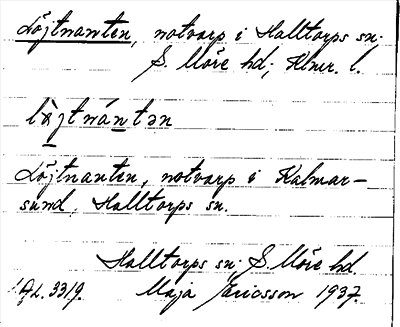 Löjtnanten, notvarp i Halltorps sn;
S. Möre hd; Klmr. l.
Löjtnanten, notvarp i Kalmar-
sund. Halltorps sn.
Halltorps sn; S. Möre hd.
Maja Ericsson 1937.